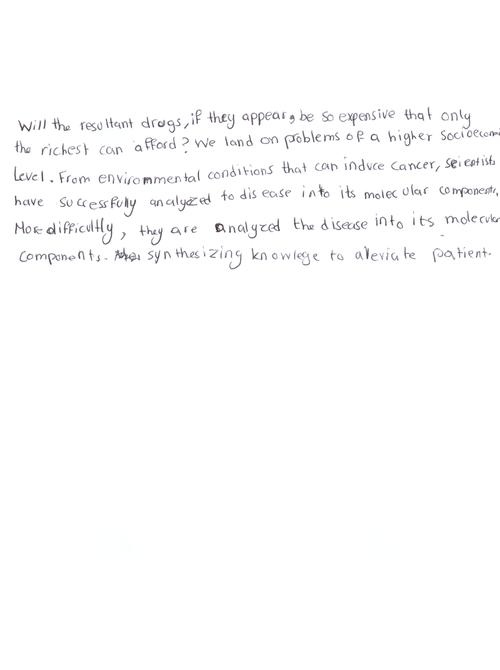 Will the resultant drugs, if they appear, be so expensive that only
the richest can afford? We land on problems of a higher socioeconomi
level. From envirommental conditions that can induce cancer, scientists
have successfully analyzed to disease into its molecular components.
More difficultly, they are analyzed the disease into its molecular
components. synthesizing knowlege to aleviate patient.